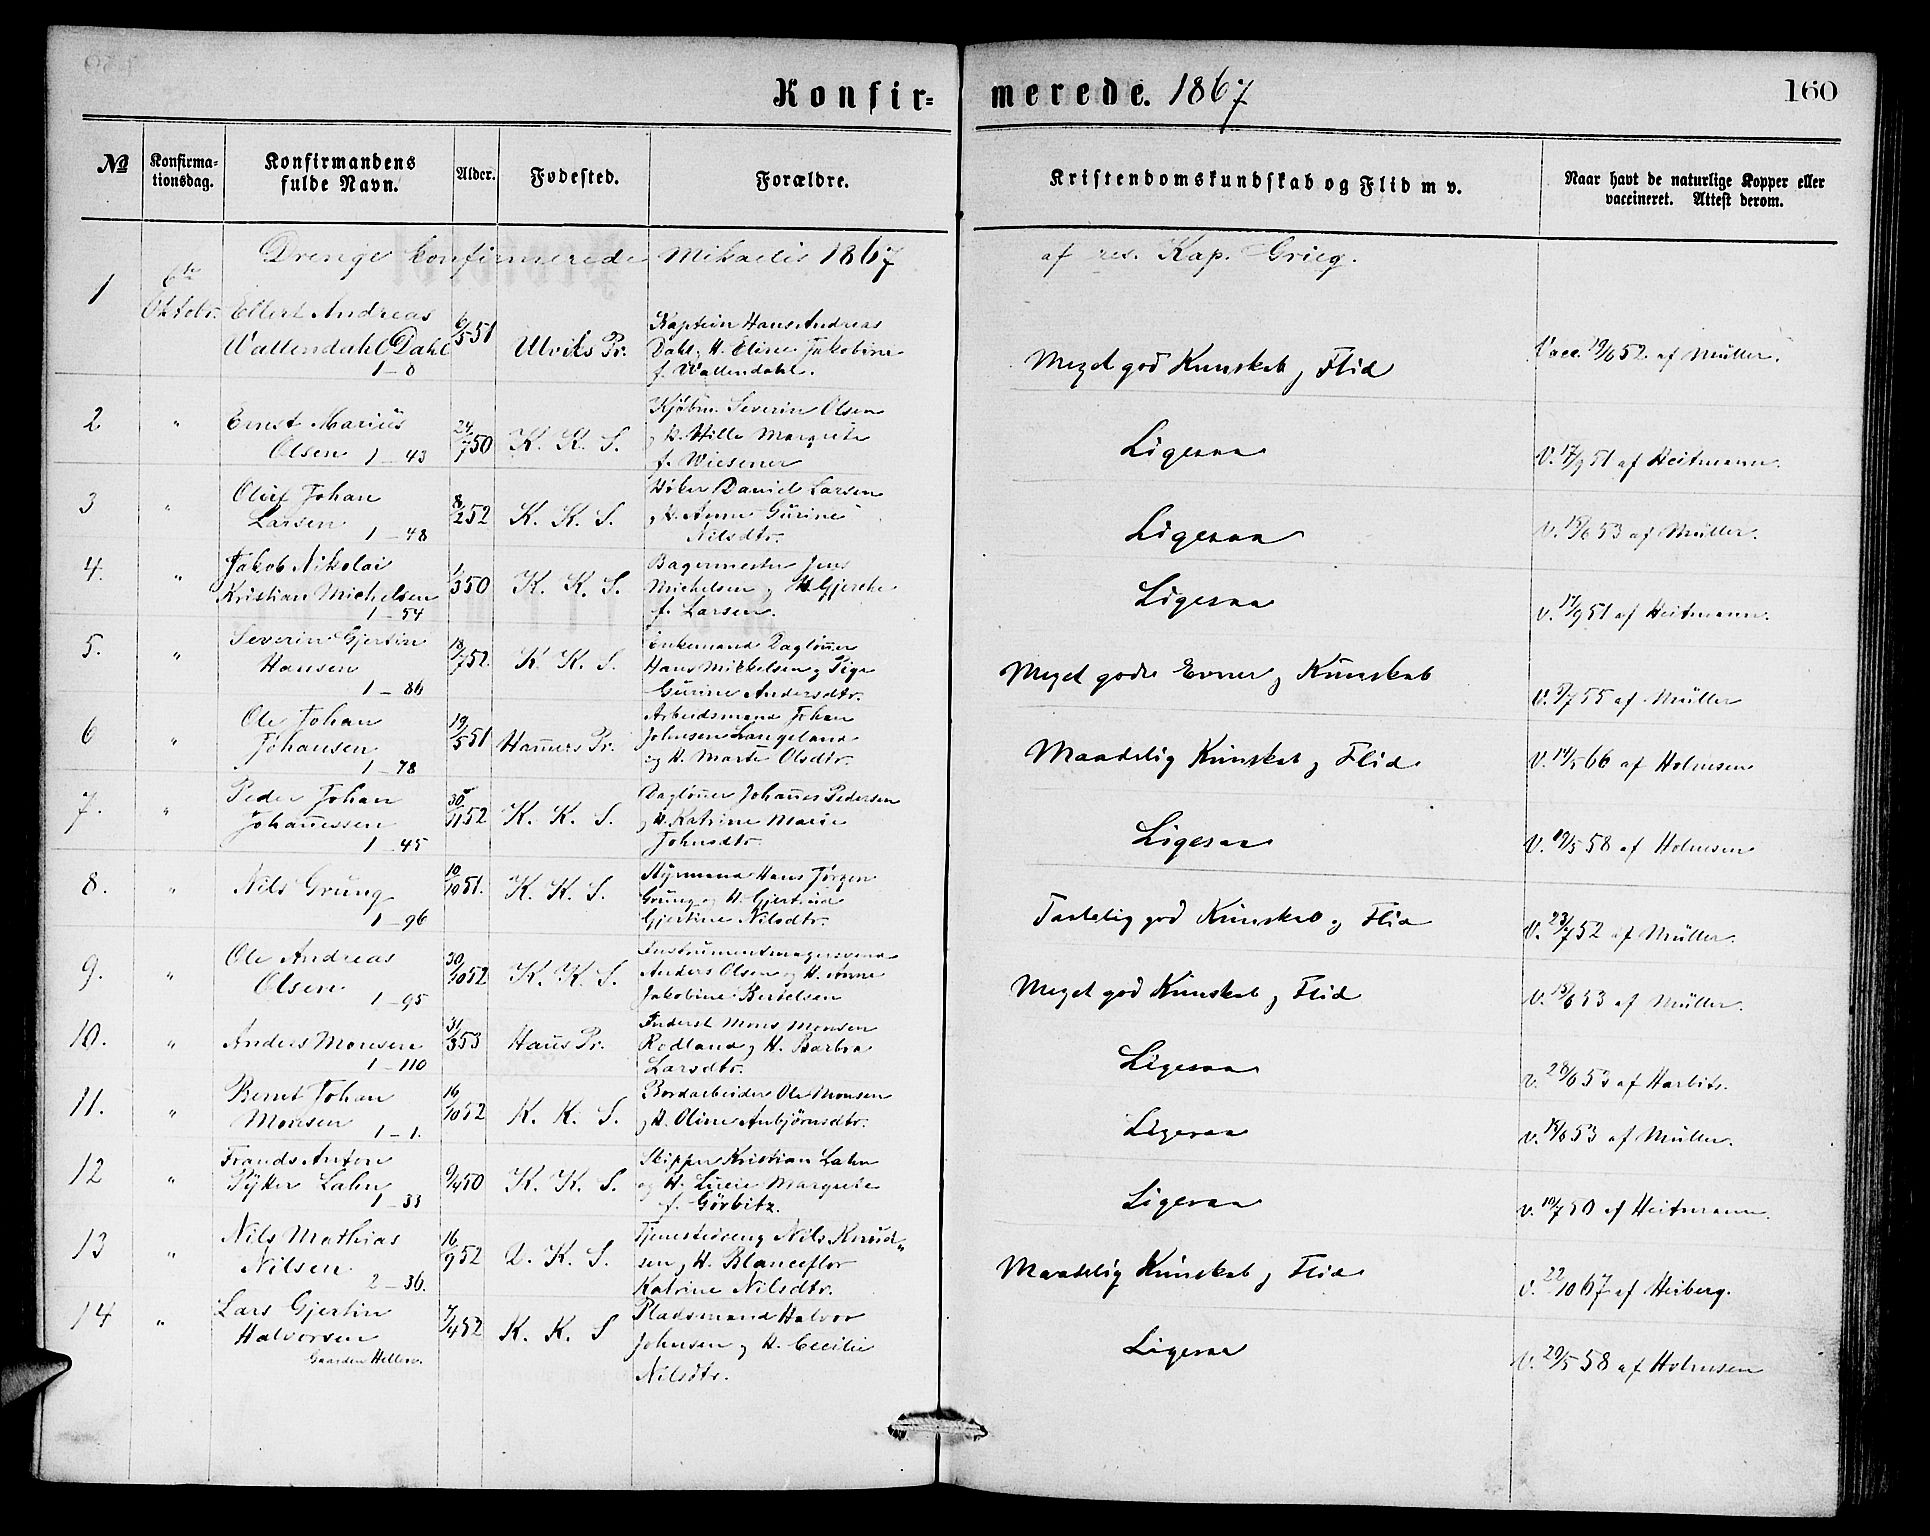 Konfir=
merede. 1867
160
№
Konfirma-
tionsdag.
Konfirmandens
fulde Navn.
Alder.
Fødested.
Forældre.
Kristendomskundskab og Flid m v.
Naar havt de naturlige Kopper eller
vaccineret. Attest derom.
Drenge konfirmerede Mikaelis 1867
af res. Kap. Grieg.
1
6te
Oktobr.
Ellert Andreas
Wallendahl Dahl
1 - 8
6/5 51
Ulviks Pr.
Kaptein Hans Andreas
Dahl, H. Eline Jakobine
f. Wallendahl.
Meget god Kunskab og Flid
Vacc. 19/6 52. af Müller.
2
"
Ernst Marius
Olsen 1 - 43
24/7 50
K. K. S.
Kjøbm. Severin Olsen
og H. Hille Margrete
f. Wiesener
Ligesaa
V. 17/9 51 af Heitmann.
3
"
Oluf Johan
Larsen
1 - 48
8/2 52
K. K. S.
Høker Daniel Larsen
og H. Anne Gurine
Nilsdtr.
Ligesaa
V. 18/6 53 af Müller.
4.
"
Jakob Nikolai
Kristian Michelsen
1 - 54
1/3 50
K. K. S.
Bagermester Jens
Michelsen og H. Gjerche
f. Larsen.
Ligesaa
V. 17/9 51 af Heitmann.
5.
"
Severin Gjertin
Hansen
1 - 86
18/7 52.
K. K. S.
Enkemand Dagløner
Hans Mikkelsen og Pige
Gurine Andersdtr.
Meget gode Evner og Kunskab
V. 9/7 55 af Müller
6
"
Ole Johan
Johansen
1 - 78
19/5 51
Hamers Pr.
Arbeidsmand Johan
Johnsen Langeland
og H. Marte Olsdtr.
Maadelig Kunskab og Flid
V. 14/5 66 af Holmsen
7.
"
Peder Johan
Johannessen
1 - 45
30/11 52
K. K. S.
Dagløner Johannes Pedersen
og H. Katrine Marie
Johnsdtr.
Ligesaa
V. 19/5 58 af Holmsen
8.
"
Nils Grung
1 - 96
10/10 51.
K. K. S.
Styrmand Hans Jørgen
Grung og H. Gjertrud
Gjertine Nilsdtr.
Taalelig god Kunskab og Flid
V. 23/7 52 af Müller.
9.
"
Ole Andreas
Olsen
1 - 95
30/10 52
K. K. S.
Instrumentmagersvend
Anders Olsen og H. Anne
Jakobine Bertelsen
Meget god Kunskab og Flid
V. 18/6 53 af Müller.
10.
"
Anders Monsen
1 - 110
31/3 53
Haus Pr.
Inderst Mons Monsen
Rødland og H. Barbra
Larsdtr.
Ligesaa
V. 28/6 53 af Harbitz.
11.
"
Bernt Johan
Monsen 1 - 1.
16/10 52
K. K. S.
Bordarbeider Ole Monsen
og H. Oline Anbjørnsdtr.
Ligesaa
V. 18/6 53 af Müller.
12
"
Frands Anton
Pytter Lahn
1 - 33
9/4 50
K. K. S.
Skipper Kristian Lahn
og H. Lucie Margrete
f. Görbitz.
Ligesaa
V. 10/7 50 af Heitmann.
13
"
Nils Mathias
Nilsen
2 - 36.
16/9 52
D. K. S.
Tjenestedreng Nils Knud-
sen og H. Blanceflor
Katrine Nilsdtr.
Maadelig Kunskab og Flid
V. 22/10 67 af Heiberg.
14
"
Lars Gjertin
Halvorsen
Gaarden Hellen.
7/4 52
K. K. S
Pladsmand Halvor
Johnsen og H. Cecilie
Nilsdtr.
Ligesaa
V. 29/5 58 af Holmsen